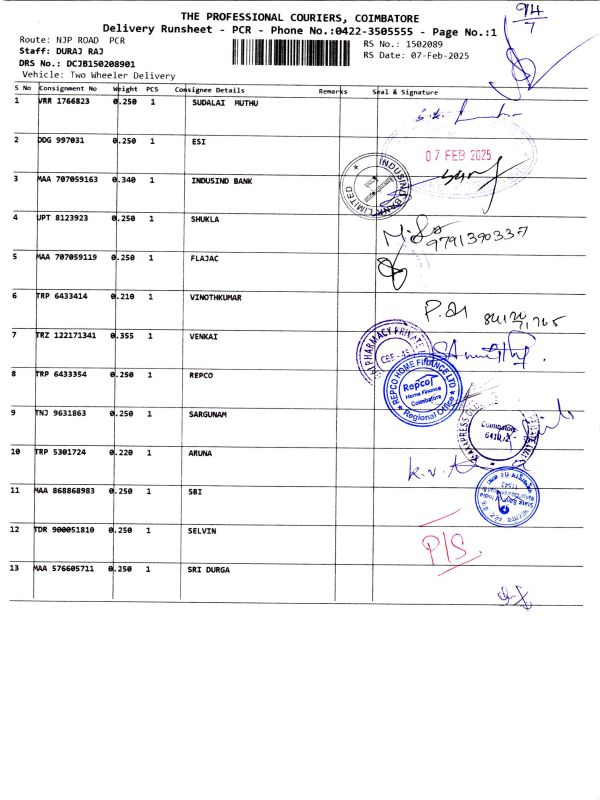 THE PROFESSIONAL COURIERS, COIMBATORE
Delivery Runsheet - PCR - Phone No.:0422-3505555 - Page No.:1
94/7
Route: NJP ROAD PCR
RS No.: 1502089
Staff: DURAJ RAJ
RS Date: 07-Feb-2025
DRS No.: DCJB150208901
Vehicle: Two Wheeler Delivery
S No Consignment No Weight PCS Consignee Details Remarks Seal & Signature
1 VRR 1766823 0.250 1 SUDALAI MUTHU
2 DDG 997031 0.250 1 ESI
07 FEB 2025
3 MAA 707059163 0.340 1 INDUSIND BANK
INDUSIND BANK LIMITED
4 UPT 8123923 0.250 1 SHUKLA
9791390337
5 MAA 707059119 0.250 1 FLAJAC
6 TRP 6433414 0.210 1 VINOTHKUMAR
7 TRZ 122171341 0.355 1 VENKAI
PHARMACY
8 TRP 6433354 0.250 1 REPCO
REPCO HOME FINANCE LTD
Repco
Home Finance
Coimbatore
Regional Office
9 TNJ 9631863 0.250 1 SARGUNAM
Coimbatore
10 TRP 5301724 0.220 1 ARUNA
K.V.
11 MAA 868868983 0.250 1 SBI
State Bank of India
12 TDR 900051810 0.250 1 SELVIN
P/S
13 MAA 576605711 0.250 1 SRI DURGA